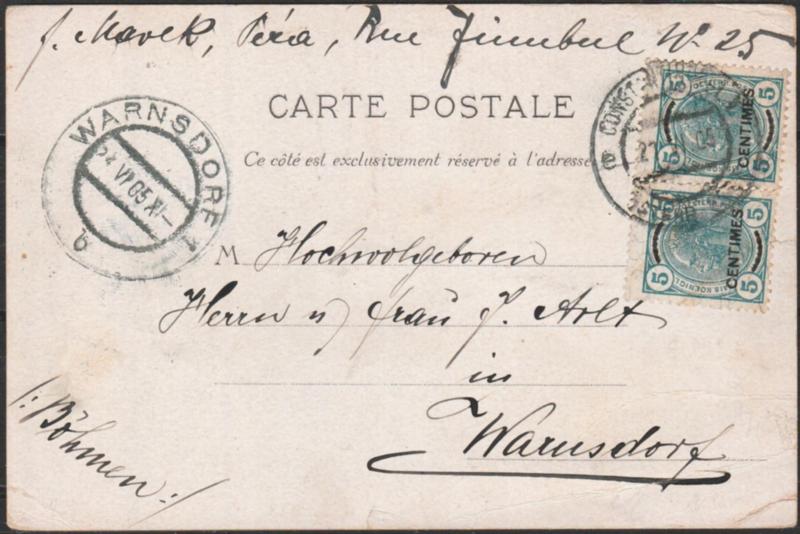 J. Marek, Péra, Rue Jimnbul Nº 25
CARTE POSTALE
Ce côté est exclusivement réservé à l'adresse
WARNSDORF 1
24 VI 05 XI–
b
CONST
5 5
CENTIMES
5 5
CENTIMES
5 5
M Hochwolgeboren
Herrn u) frau J. Arlt
in
Warnsdorf
/: Böhmen :/